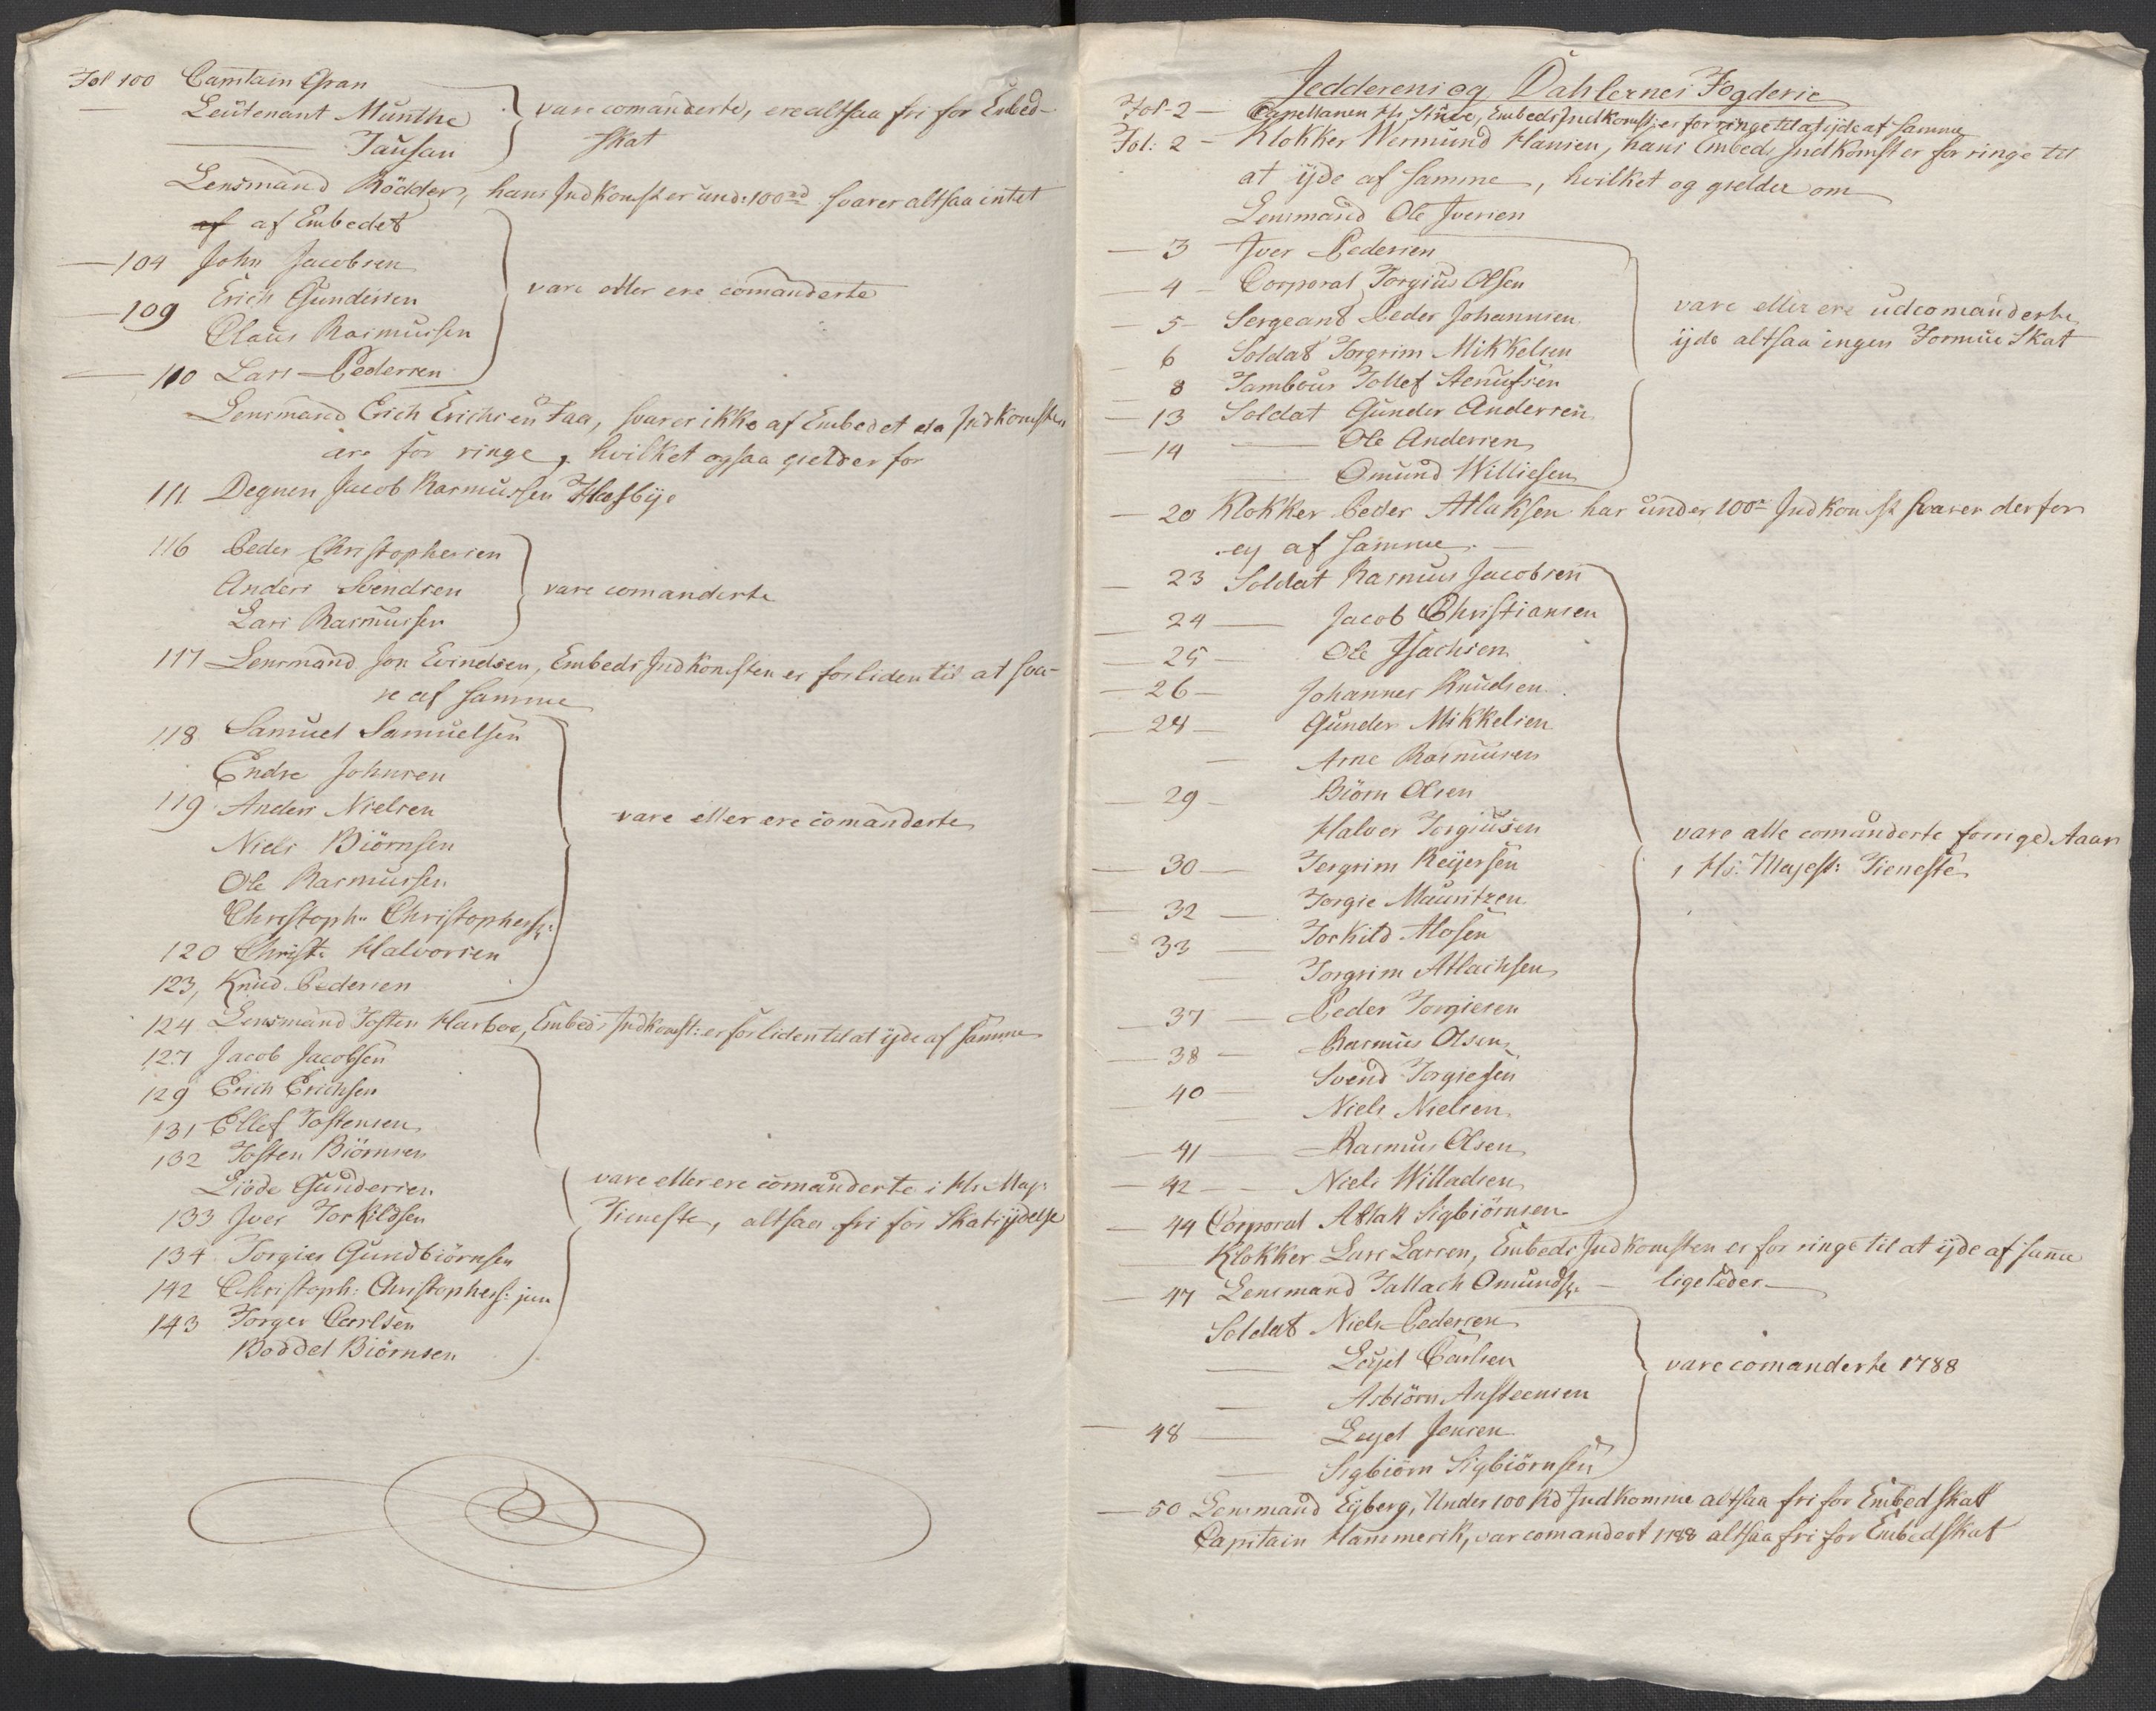 Fol 100 Capitain Gran
— Leutenant Munthe } vare comanderte, ere altsaa fri for Embed-
— Tausan skat
Lensmand Rödder, hans Indkomst er und: 100 rd svarer altsaa intet
af Embedet
— 104 John Jacobsen
Erich Gundersen } vare eller ere comanderte
— 109
Claus Rasmussen
— 110 Lars Pedersen
Lensmand Erich Erichsen Faa, svarer ikke af Embedet da Indkomsten
ere for ringe, hvilket ogsaa gielder for
111 Degnen Jacob Rasmussen
116 Peder Christophersen
Anders Svendsen } vare comanderte
Lars Rasmussen
117 Lensmand Jon Evindsen, Embeds Indkomsten er for liden til at sva-
re af samme
118 Samuel Samuelsen
Endre Johnsen
119 Anders Nielsen
vare eller ere comanderte
Niels Biörnsen
Ole Rasmussen
Christoph: Christophers:
120 Christ: Halvorsen
123, Knud Pedersen
124 Lensmand Tosten Harboe, Embeds Indkomst: er for liden til at yde af samme
127 Jacob Jacobsen
129 Erich Erichsen
131 Ellef Tostensen
132 Tosten Biörnsen
Giöde Gundersen vare eller ere comanderte i Hs: May:
133 Iver Torkildsen Tieneste, altsaa fri for Skats ydelse
134 Torgies Gundbiörnsen
142 Christoph: Christophers: jun
143 Torger Carlsen
Boddel Biörnsen
Jedderens og Dahlernes Fogderie
Fol- 2 — Capellanen Hr Embeds Indkomst: er for ringe til at yde af samme
Fol: 2 — Klokker Wermund Hansen, hans Embeds Indkomst er for ringe til
at yde af samme, hvilket og gielder om
Lensmand Ole Iversen
— 3 Iver Pedersen
— 4 — Corporal Torgius Olsen
— 5 — Sergeant Peder Johannsen vare eller ere udcomanderte
— 6 Soldat Torgrim Mikkelsen yde altsaa ingen Formue Skat
8 Tambour Tollef
— 13 Soldat Gunder Andersen
— 14 — Ole Andersen
— Omund Williesen
— 20 Klokker Peder Atlaksen har under 100 rd Indkomst svarer derfor
ey af samme. —
— 23 Soldat Rasmus Jacobsen
— 24 — Jacob Christiansen
— 25 — Ole Isachsen
— 26 — Johannes Knudsen
— 24 — Gunder Mikkelsen
— Arne Rasmusen
— 29 — Biörn Olsen
Halvor Torgiusen vare alle comanderte forrige Aar
— 30 — Torgrim Reyersen i Hs: Mayest: Tieneste
— 32 — Torgie Mauritzen
— 33 — Torkild
— Torgrim Atlachsen
— 37 — Peder Torgiesen
— 38 — Rasmus Olsen
— 40 — Svend Torgiesen
— Niels Nielsen
— 41 — Rasmus Olsen
— 42 — Niels Willadsen
— 44 Corporal Atlak Sigbiörnsen
— Klokker Lars Larsen, Embeds Indkomsten er for ringe til at yde af samme
— 47 Lensmand Tallach Omunds: — ligeleder
Soldat Niels Pedersen
— Leyel Carlsen vare comanderte 1788
— Asbiörn Ansteensen
— 48 — Leyel Jensen
— Sigbiörn Sigbiörnsen
— 50 Lensmand Eyberg, Under 100 Rd Indkomme altsaa fri for Embedskat
Capitain Hammerik, var comandert 1788 altsaa fri for Embedskat